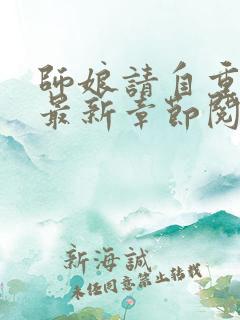 師娘請自重
最新章節閱
新海誠
未經同意禁止轉載